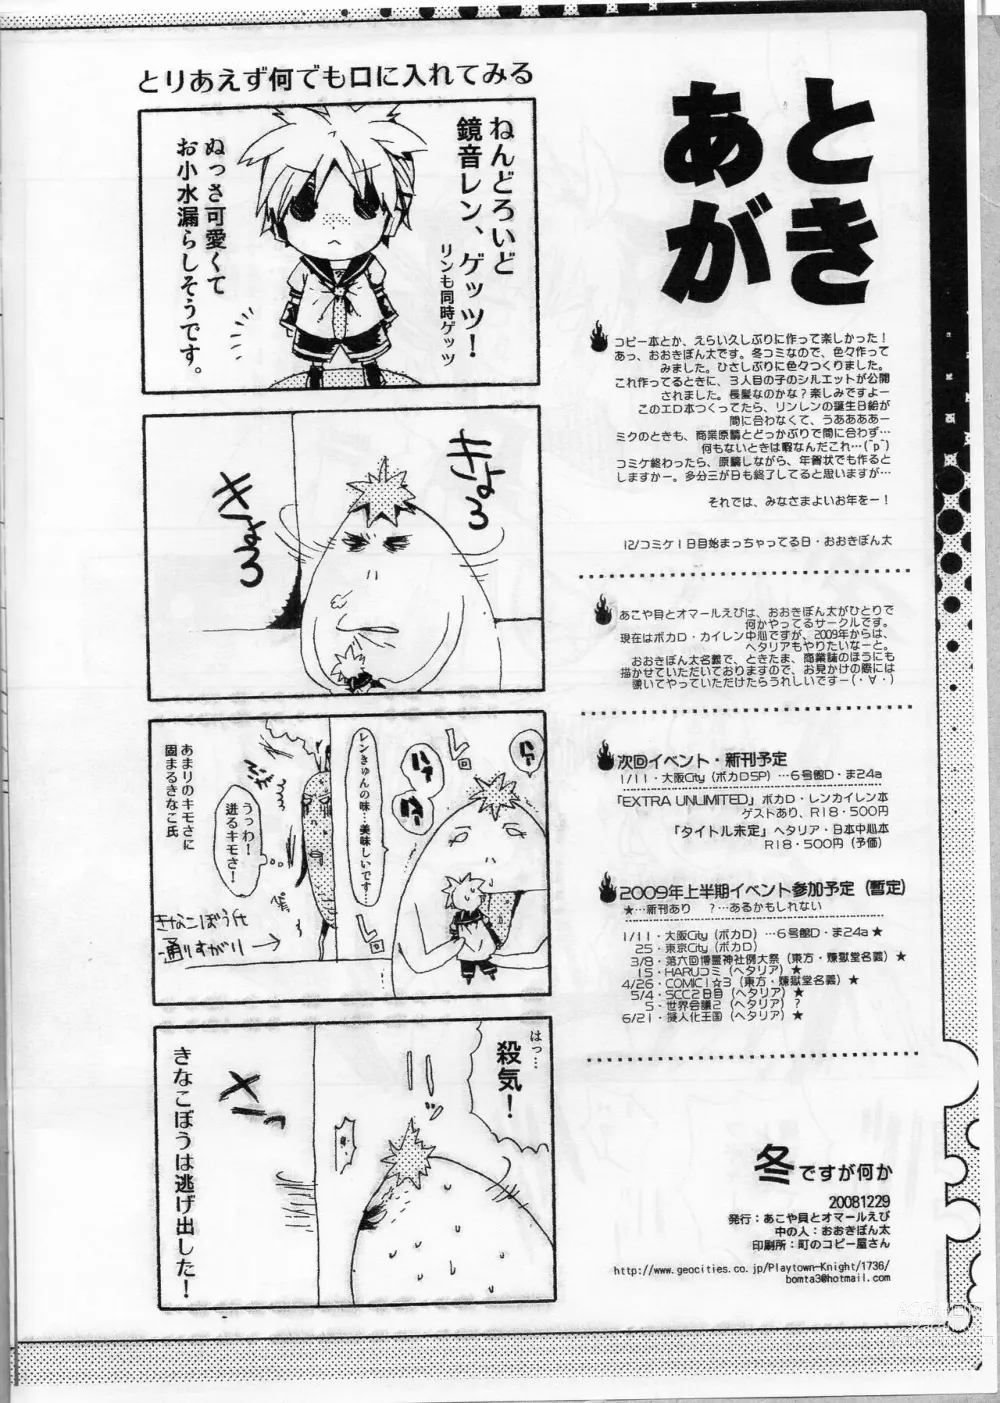 あとがき
コピー本とか、えらい久しぶりに作って楽しかった！
あっ、おおきぼん太です。冬コミなので、色々作って
みました。ひさしぶりに色々つくりました。
これ作ってるときに、３人目の子のシルエットが公開
されました。長髪なのかな？楽しみですよー
このエロ本つくってたら、リンレンの誕生日絵が
間に合わなくて、うああああー
ミクのときも、商業原稿とどっかぶりで間に合わず…
何もないときは暇なんだこれ…(^p^)
コミケ終わったら、原稿しながら、年賀状でも作ると
しますかー。多分三が日も終了してると思いますが…
それでは、みなさまよいお年をー！
12/コミケ１日目始まっちゃってる日・おおきぼん太
あこや貝とオマールえびは、おおきぼん太がひとりで
何かやってるサークルです。
現在はボカロ・カイレン中心ですが、2009年からは、
ヘタリアもやりたいなーと。
おおきぼん太名義で、ときたま、商業誌のほうにも
描かせていただいておりますので、お見かけの際には
覗いてやっていただけたらうれしいですー(・∀・)
次回イベント・新刊予定
1/11・大阪City（ボカロSP）…６号館D・ま24a
「EXTRA UNLIMITED」ボカロ・レンカイレン本
ゲストあり、R18・500円
「タイトル未定」ヘタリア・日本中心本
R18・500円（予価）
2009年上半期イベント参加予定（暫定）
★…新刊あり　？…あるかもしれない
1/11・大阪City（ボカロ）…６号館D・ま24a★
25・東京City（ボカロ）
3/8・第六回博麗神社例大祭（東方・煉獄堂名義）★
15・HARUコミ（ヘタリア）★
4/26・COMIC1☆3（東方・煉獄堂名義）★
5/4・SCC2日目（ヘタリア）★
5・世界会議２（ヘタリア）？
6/21・擬人化王国（ヘタリア）★
冬ですが何か
20081229
発行：あこや貝とオマールえび
中の人：おおきぼん太
印刷所：町のコピー屋さん
http://www.geocities.co.jp/Playtown-Knight/1736/
bomta3@hotmail.com
とりあえず何でも口に入れてみる
ねんどろいど
鏡音レン、ゲッツ！
リンも同時ゲッツ
ぬっさ可愛くて
お小水漏らしそうです。
きょろ
きょろ
ハァ
ハァ
ハァ
レロ
レンきゅんの味…美味しいです…
レロ
うっわ！
迸るキモさ！
あまりのキモさに
固まるきなこ氏
きなこぼう氏
通りすがり
はっ…
殺気！
きなこぼうは逃げ出した！